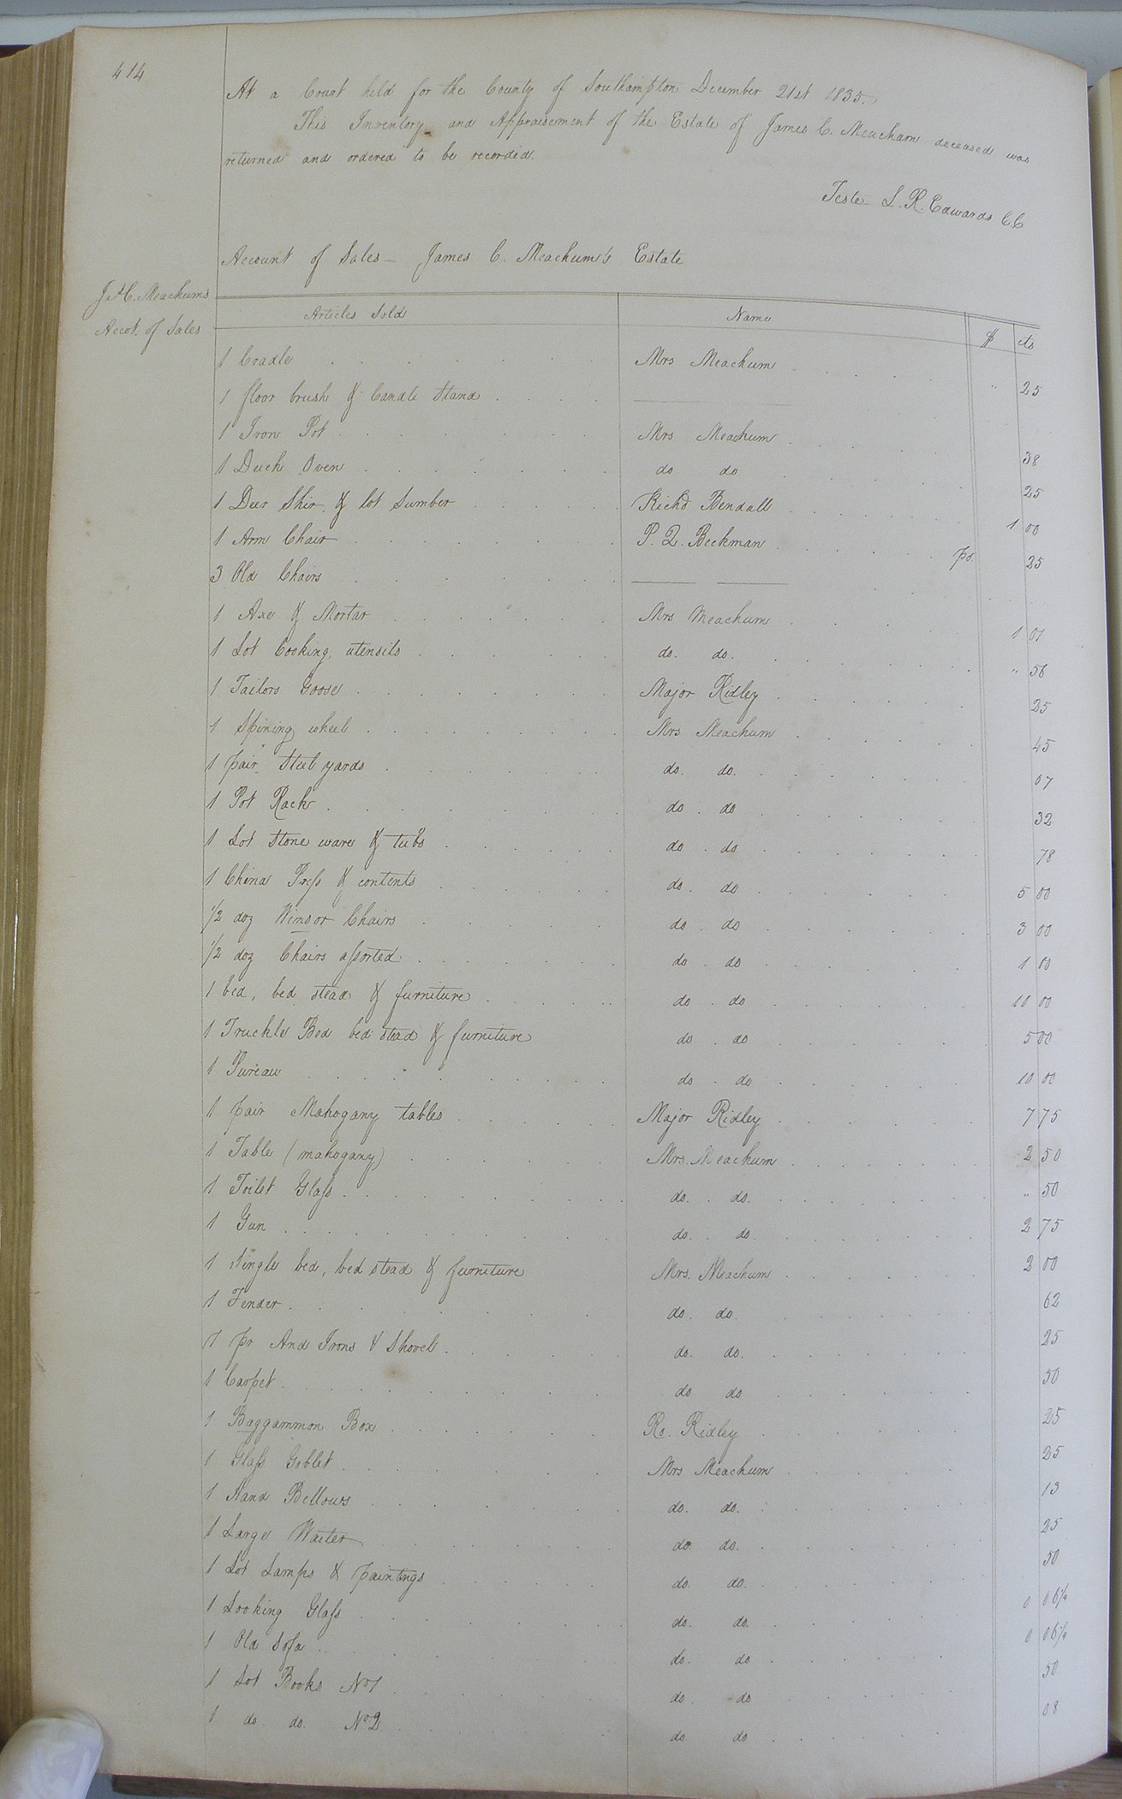 414
At a Court held for the County of Southampton December 21st 1835.
This Inventory and Appraisement of the Estate of James C. Meacham deceased was
returned and ordered to be recorded.
Teste L. R. Edwards CC
Account of Sales - James C. Meachum's Estate
Jas C. Meachums
Acct. of Sales
Articles Sold Name $ cts
1 Cradle Mrs Meachum " 25
1 floor brush & Candle Stand
1 Iron Pot Mrs Meachum 38
1 Duch Oven do do 25
1 Deer Skin & lot Lumber Richd Bendall 1 00
1 Arm Chair P. Q. Beckman pd. 25
3 Old Chairs
1 Axe & Mortar Mrs Meachum 1 01
1 Lot Cooking utensils do. do. " 56
1 Tailors Goose Major Ridley 25
1 Spining wheel Mrs Meachum 45
1 pair Steel yards do. do. 07
1 Pot Rack do. do 32
1 Lot Stone ware & tubs do. do 78
1 China Press & contents do. do 5 00
1/2 doz Winsor Chairs do. do 3 00
1/2 doz Chairs assorted do. do 1 00
1 bed, bed stead & furniture do. do 10 00
1 Truckle Bed bed stead & furniture do. do 5 00
1 Bureau do. do 10 00
1 pair Mahogany tables Major Ridley 7 75
1 Table (mahogany) Mrs. Meachum 2 50
1 Toilet Glass do. do. " 50
1 Gun do. do 2 75
1 Single bed, bed stead & furniture Mrs. Meachum 2 00
1 Fender do. do. 62
1 pr And Irons & Shovel do. do. 25
1 Carpet do do 50
1 Baggammon Box Ro. Ridley 25
1 Glass Goblet Mrs Meachum 25
1 Hand Bellows do. do. 13
1 Large Waiter do do. 25
1 Lot Lamps & paintings do. do. 50
1 Looking Glass do. do. 0 06¼
1 Old Sofa do. do 0 06¼
1 Lot Books No 1 do. do 50
1 do. do. No 2 do do 08